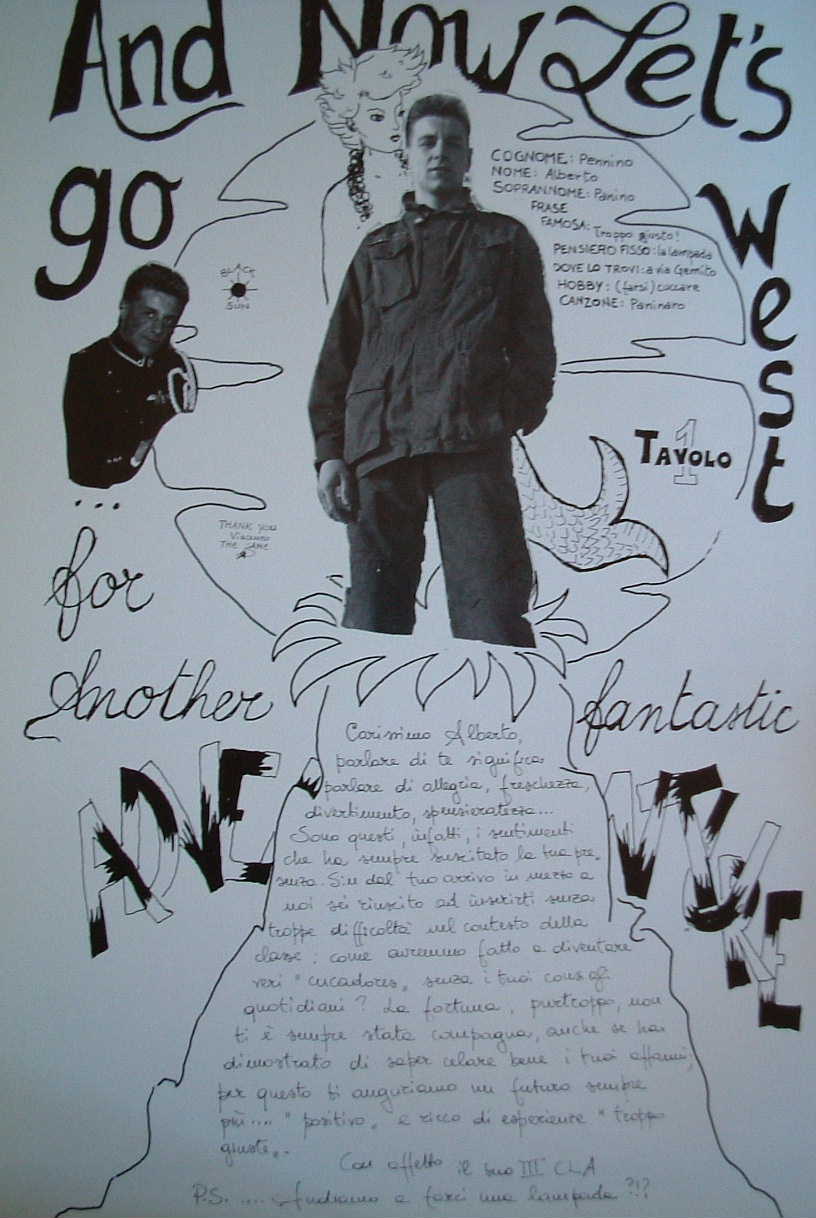 And Now Let's
go
west
COGNOME: Pennino
NOME: Alberto
SOPRANNOME: Panino
FRASE
FAMOSA: Troppo giusto!
PENSIERO FISSO: la lampada
DOVE LO TROVI: a via Gemito
HOBBY: (farsi) cuccare
CANZONE: Paninaro
BLACK
SUN
TAVOLO
1
THANK YOU
THE
...
for
Another fantastic
ADVENTURE
Carissimo Alberto,
parlare di te significa
parlare di allegria, freschezza,
divertimento, spensieratezza...
Sono questi, infatti, i sentimenti
che ha sempre suscitato la tua pre-
senza. Sin dal tuo arrivo in mezzo a
noi sei riuscito ad inserirti senza
troppe difficoltà nel contesto della
classe: come avremmo fatto a diventare
veri "cucadores" senza i tuoi consigli
quotidiani? La fortuna, purtroppo, non
ti è sempre stata compagna, anche se hai
dimostrato di saper celare bene i tuoi affanni;
per questo ti auguriamo un futuro sempre
più.... "positivo" e ricco di esperienze "troppo
giuste".
Con affetto il tuo III CLA
P.S. .... Andiamo a farci una lampada?!?